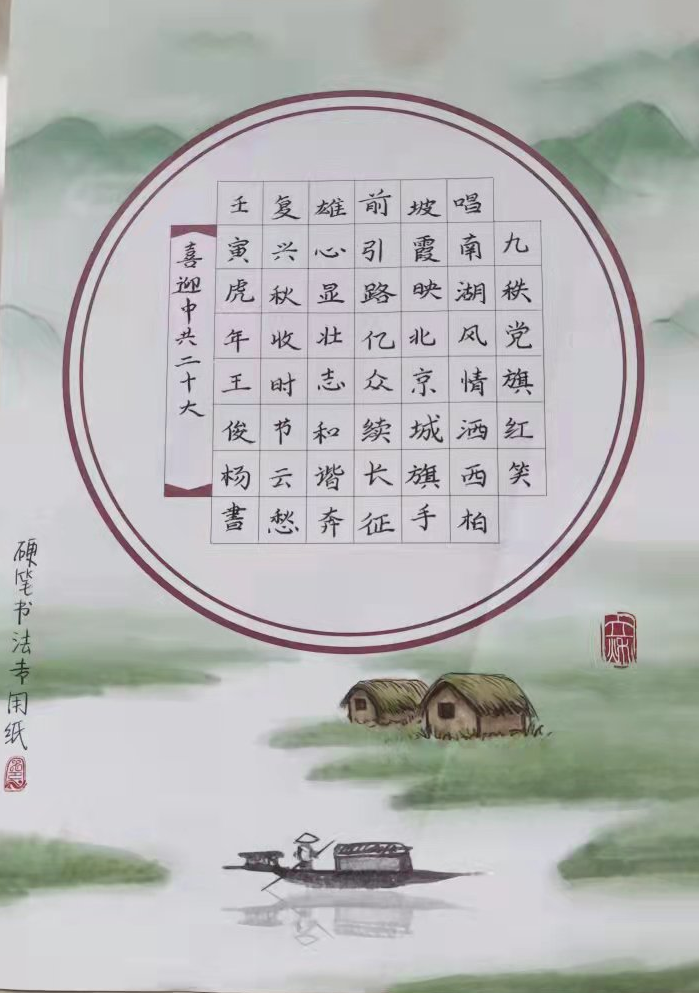 九秩党旗红笑
唱南湖风情洒西柏
坡霞映北京城旗手
前引路亿众续长征
雄心显壮志和谐奔
复兴秋收时节云愁
壬寅虎年王俊杨書
喜迎中共二十大
硬笔书法专用纸